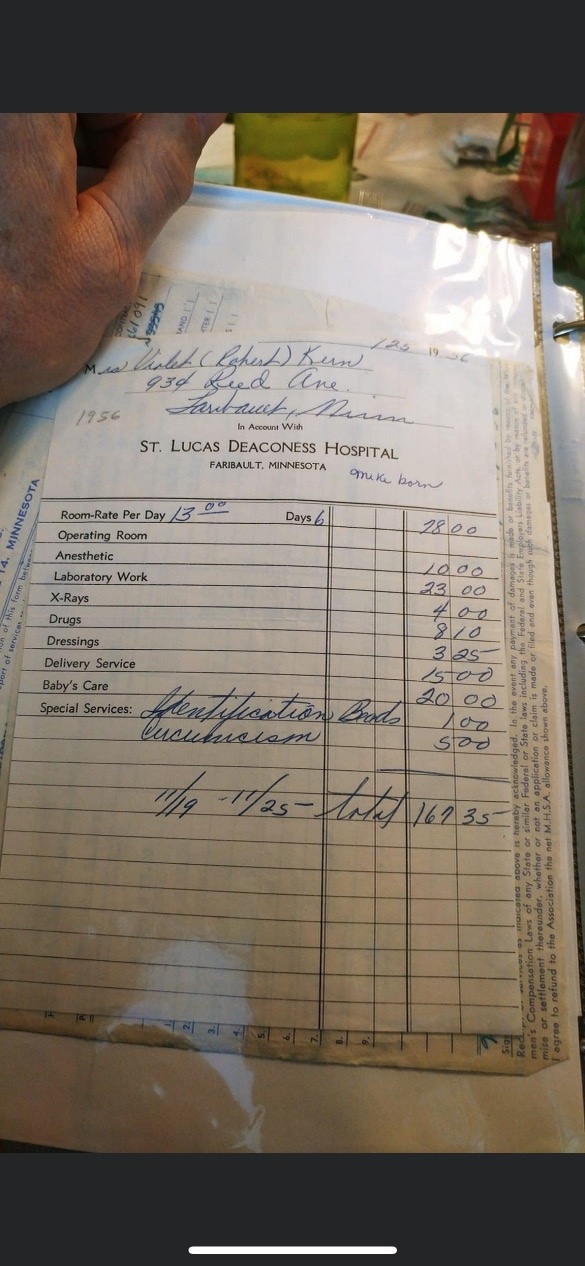 1956
Mrs Violet (Robert) Kern
934 Reed Ave.
Faribault, Minn
1956
In Account With
ST. LUCAS DEACONESS HOSPITAL
FARIBAULT, MINNESOTA
Mike born
Room-Rate Per Day 13 00 Days 6 78 00
Operating Room
Anesthetic 10 00
Laboratory Work 23 00
X-Rays 4 00
Drugs 8 10
Dressings 3 25
Delivery Service 15 00
Baby's Care 20 00
Special Services: Identification Bands 1 00
Circumcism 5 00
11/19 - 11/25 - total 167 35
14, MINNESOTA
of this form between
port of services
61091
1. 2. 3. 4. 5. 6. 7. 8. 9.
as indicated above is hereby acknowledged. In the event any payment of damages is made or benefits furnished by
men's Compensation Laws of any State or similar Federal or State laws including the Federal and State Employers Liability Acts, or by
mise or settlement thereunder, whether or not an application or claim is made or filed and even though such damages or benefits are refunded
I agree to refund to the Association the net M.H.S.A. allowance shown above.